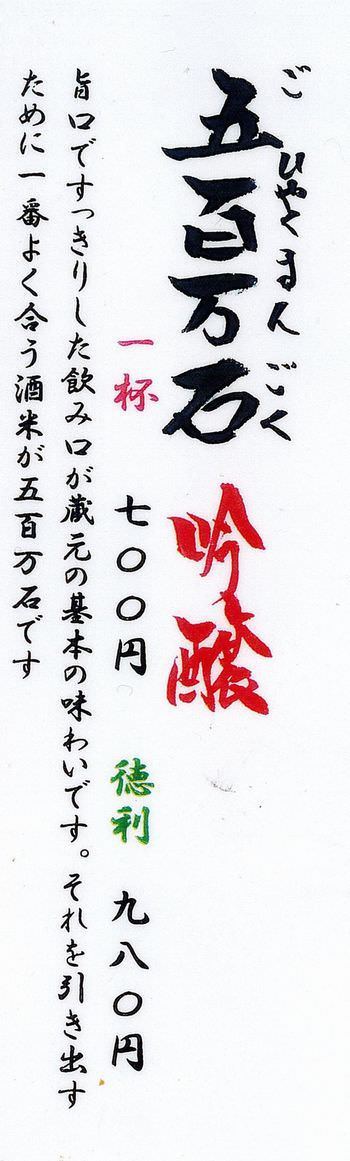 ごひゃくまんごく
五百万石 吟醸
一杯 七〇〇円 徳利 九八〇円
旨口ですっきりした飲み口が蔵元の基本の味わいです。それを引き出す
ために一番よく合う酒米が五百万石です